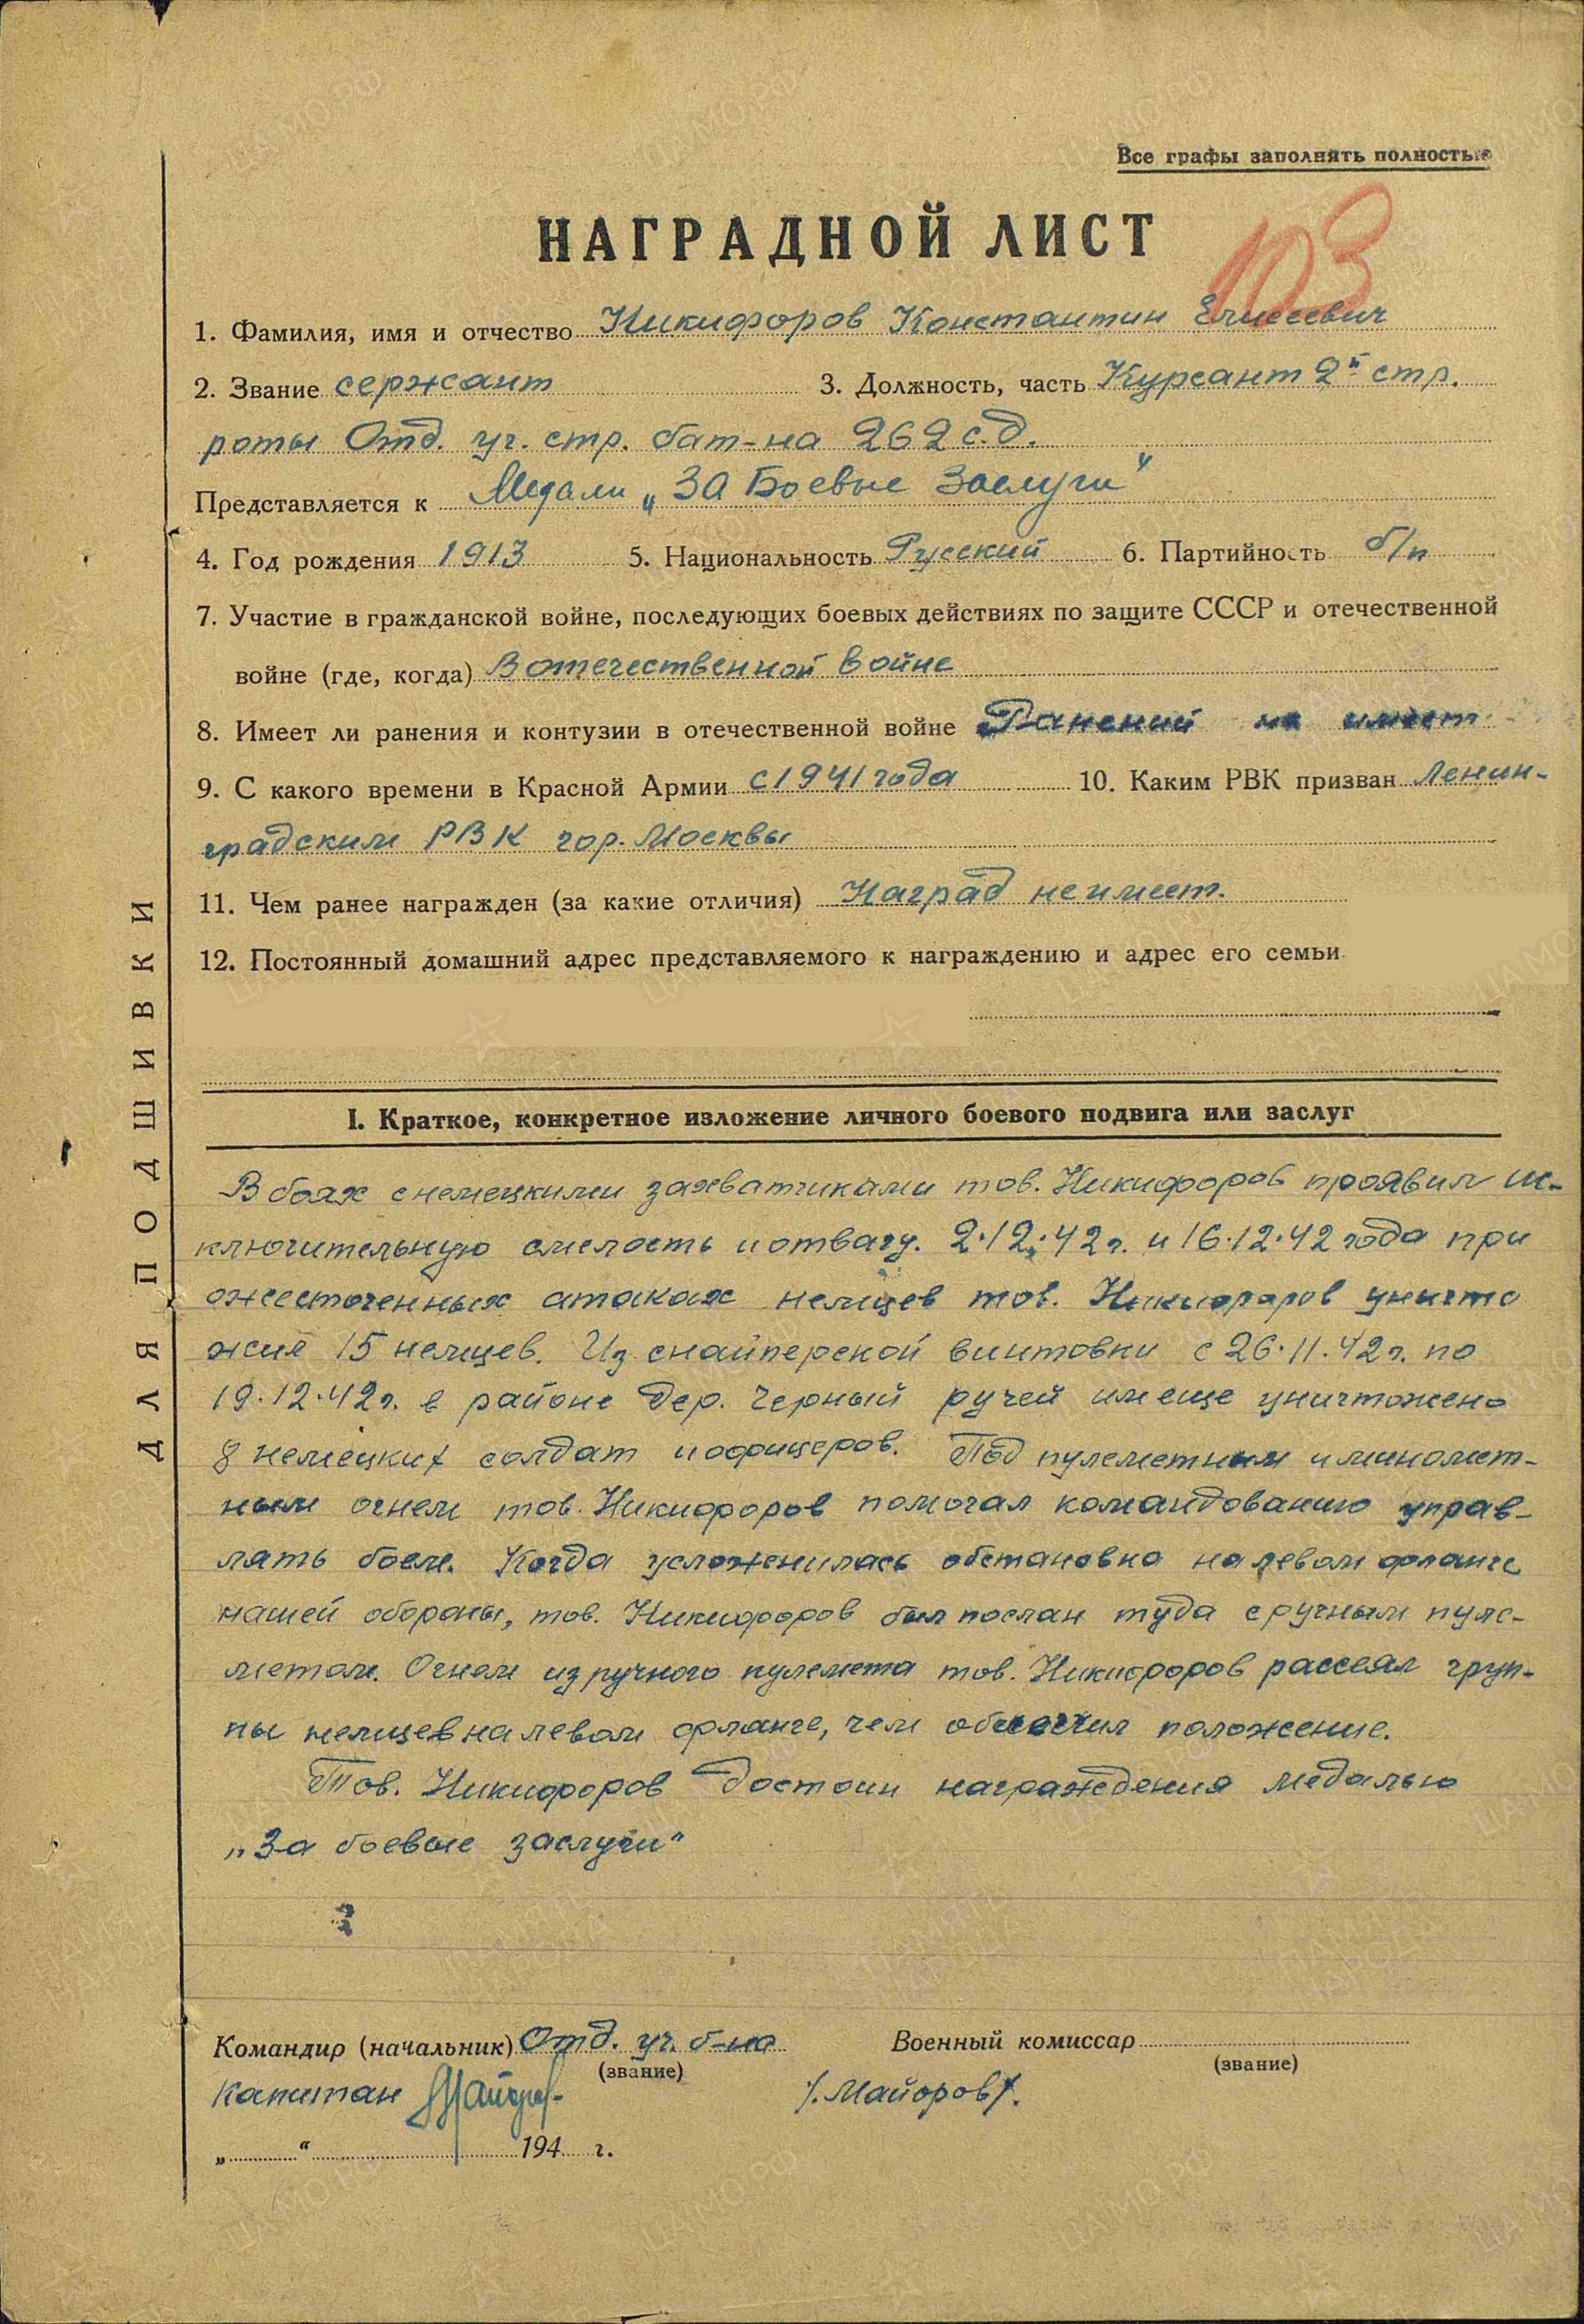 Все графы заполнять полностью
НАГРАДНОЙ ЛИСТ
103
1. Фамилия, имя и отчество Никифоров Константин Елисеевич
2. Звание сержант 3. Должность, часть Курсант 2й стр.
роты Отд. уч. стр. бат-на 262 с.д.
Представляется к Медали „ЗА Боевые Заслуги“
4. Год рождения 1913 5. Национальность Русский 6. Партийность б/п
7. Участие в гражданской войне, последующих боевых действиях по защите СССР и отечественной
войне (где, когда) В отечественной войне
8. Имеет ли ранения и контузии в отечественной войне Ранений не имеет
9. С какого времени в Красной Армии с 1941 года 10. Каким РВК призван Ленин-
градским РВК гор. Москвы
11. Чем ранее награжден (за какие отличия) Наград не имеет.
12. Постоянный домашний адрес представляемого к награждению и адрес его семьи
I. Краткое, конкретное изложение личного боевого подвига или заслуг
В боях с немецкими захватчиками тов. Никифоров проявил ис-
ключительную смелость и отвагу. 2.12.42 г. и 16.12.42 года при
ожесточенных атаках немцев тов. Никифоров уничто
жил 15 немцев. Из снайперской винтовки с 26.11.42 г. по
19.12.42 г. в районе дер. Черный ручей им еще уничтожено
8 немецких солдат и офицеров. Под пулеметным и миномет-
ным огнем тов. Никифоров помогал командованию управ-
лять боем. Когда усложнилась обстановка на левом фланге
нашей обороны, тов. Никифоров был послан туда с ручным пуле-
метом. Огнем из ручного пулемета тов. Никифоров рассеял груп-
пы немцев на левом фланге, чем облегчил положение.
Тов. Никифоров достоин награждения медалью
„За боевые заслуги“
Командир (начальник) Отд. уч. б-на Военный комиссар
(звание) (звание)
Капитан Майоров /Майоров/.
„ “ 194 г.
ДЛЯ ПОДШИВКИ